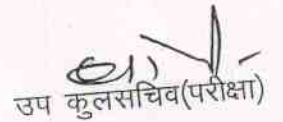 उप कुलसचिव(परीक्षा)